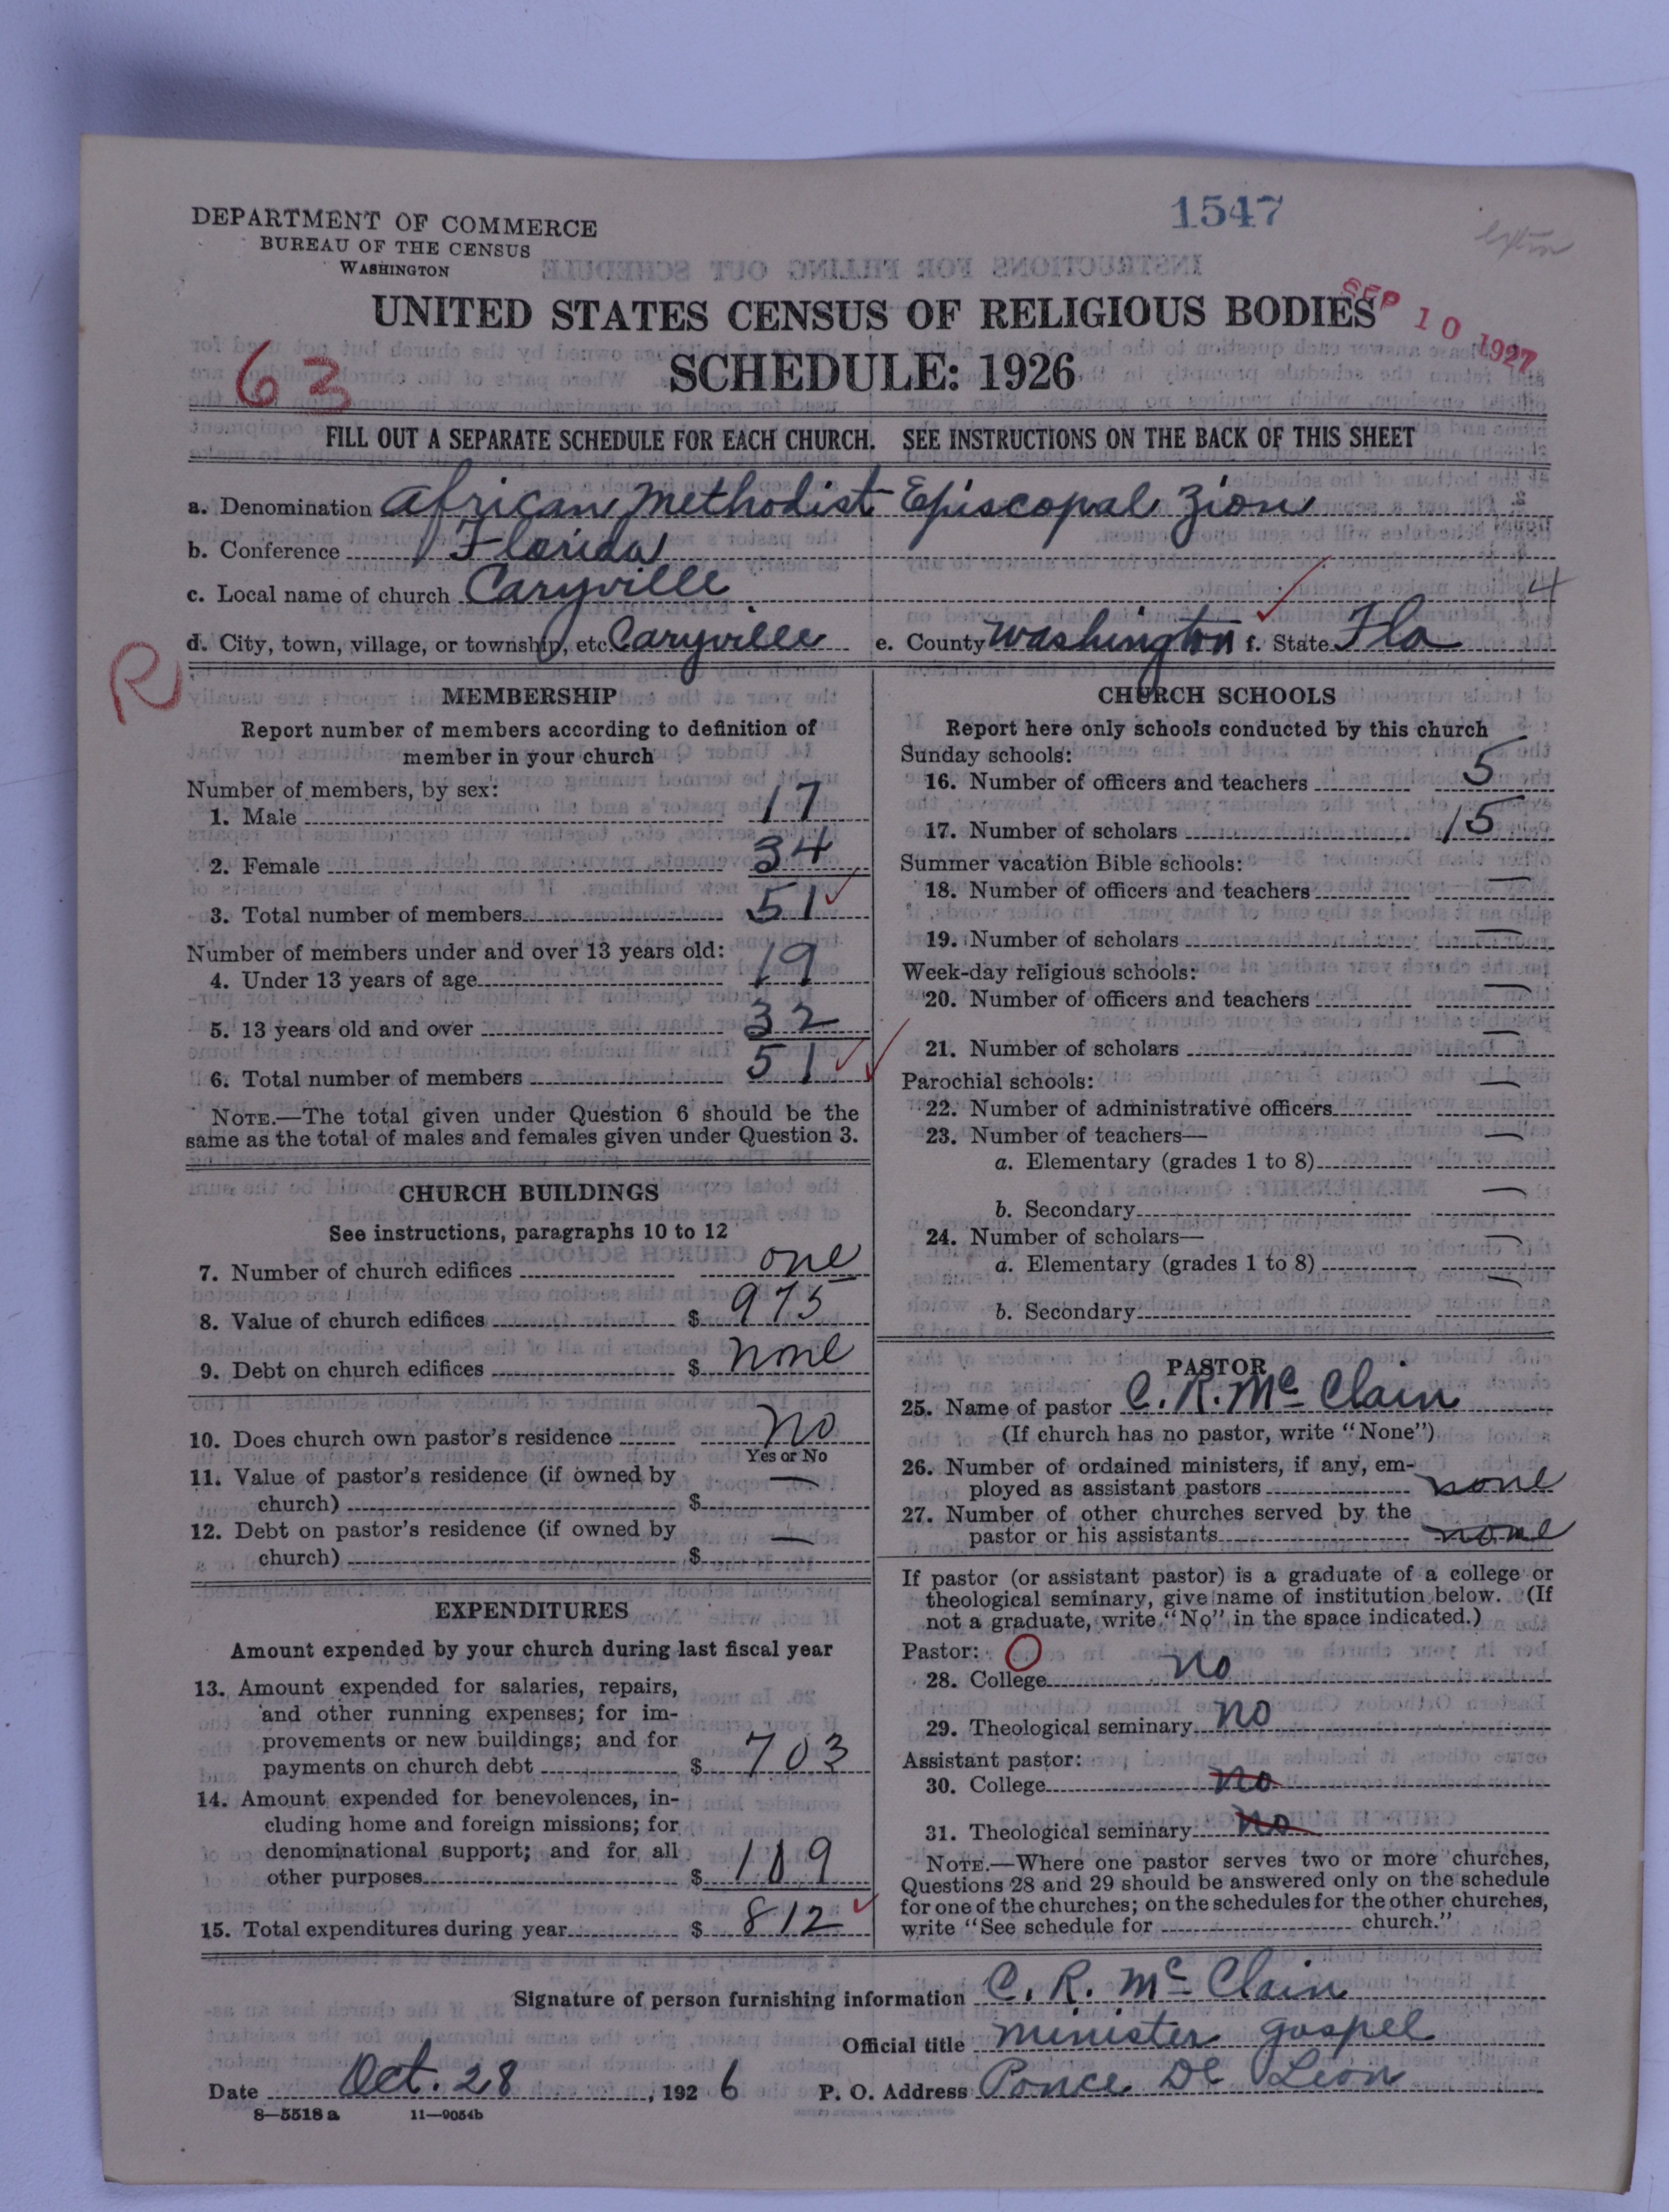 1547
DEPARTMENT OF COMMERCE
BUREAU OF THE CENSUS
WASHINGTON
SEP 10 1927
UNITED STATES CENSUS OF RELIGIOUS BODIES
63
SCHEDULE: 1926
FILL OUT A SEPARATE SCHEDULE FOR EACH CHURCH. SEE INSTRUCTIONS ON THE BACK OF THIS SHEET
a. Denomination African Methodist Episcopal Zion
b. Conference Florida
c. Local name of church Caryville
4
d. City, town, village, or township, etc. Caryville e. County Washington f. State Fla
R
MEMBERSHIP
Report number of members according to definition of
member in your church
Number of members, by sex:
1. Male 17
2. Female 34
3. Total number of members 51
Number of members under and over 13 years old:
4. Under 13 years of age 19
5. 13 years old and over 32
6. Total number of members 51
NOTE.—The total given under Question 6 should be the
same as the total of males and females given under Question 3.
CHURCH BUILDINGS
See instructions, paragraphs 10 to 12
7. Number of church edifices one
8. Value of church edifices $ 975
9. Debt on church edifices $ none
10. Does church own pastor's residence no
Yes or No
11. Value of pastor's residence (if owned by
church) $ —
12. Debt on pastor's residence (if owned by
church) $ —
EXPENDITURES
Amount expended by your church during last fiscal year
13. Amount expended for salaries, repairs,
and other running expenses; for im-
provements or new buildings; and for
payments on church debt $ 703
14. Amount expended for benevolences, in-
cluding home and foreign missions; for
denominational support; and for all
other purposes $ 109
15. Total expenditures during year $ 812
CHURCH SCHOOLS
Report here only schools conducted by this church
Sunday schools:
16. Number of officers and teachers 5
17. Number of scholars 15
Summer vacation Bible schools:
18. Number of officers and teachers —
19. Number of scholars —
Week-day religious schools:
20. Number of officers and teachers —
21. Number of scholars —
Parochial schools:
22. Number of administrative officers —
23. Number of teachers—
a. Elementary (grades 1 to 8) —
b. Secondary —
24. Number of scholars—
a. Elementary (grades 1 to 8) —
b. Secondary —
PASTOR
25. Name of pastor C. R. McClain
(If church has no pastor, write "None")
26. Number of ordained ministers, if any, em-
ployed as assistant pastors none
27. Number of other churches served by the
pastor or his assistants none
If pastor (or assistant pastor) is a graduate of a college or
theological seminary, give name of institution below. (If
not a graduate, write "No" in the space indicated.)
Pastor: O
28. College no
29. Theological seminary no
Assistant pastor:
30. College no
31. Theological seminary no
NOTE.—Where one pastor serves two or more churches,
Questions 28 and 29 should be answered only on the schedule
for one of the churches; on the schedules for the other churches,
write "See schedule for church."
Signature of person furnishing information C. R. McClain
Official title minister gospel
Date Oct. 28, 1926 P. O. Address Ponce De Leon
8—5518a 11—9054b